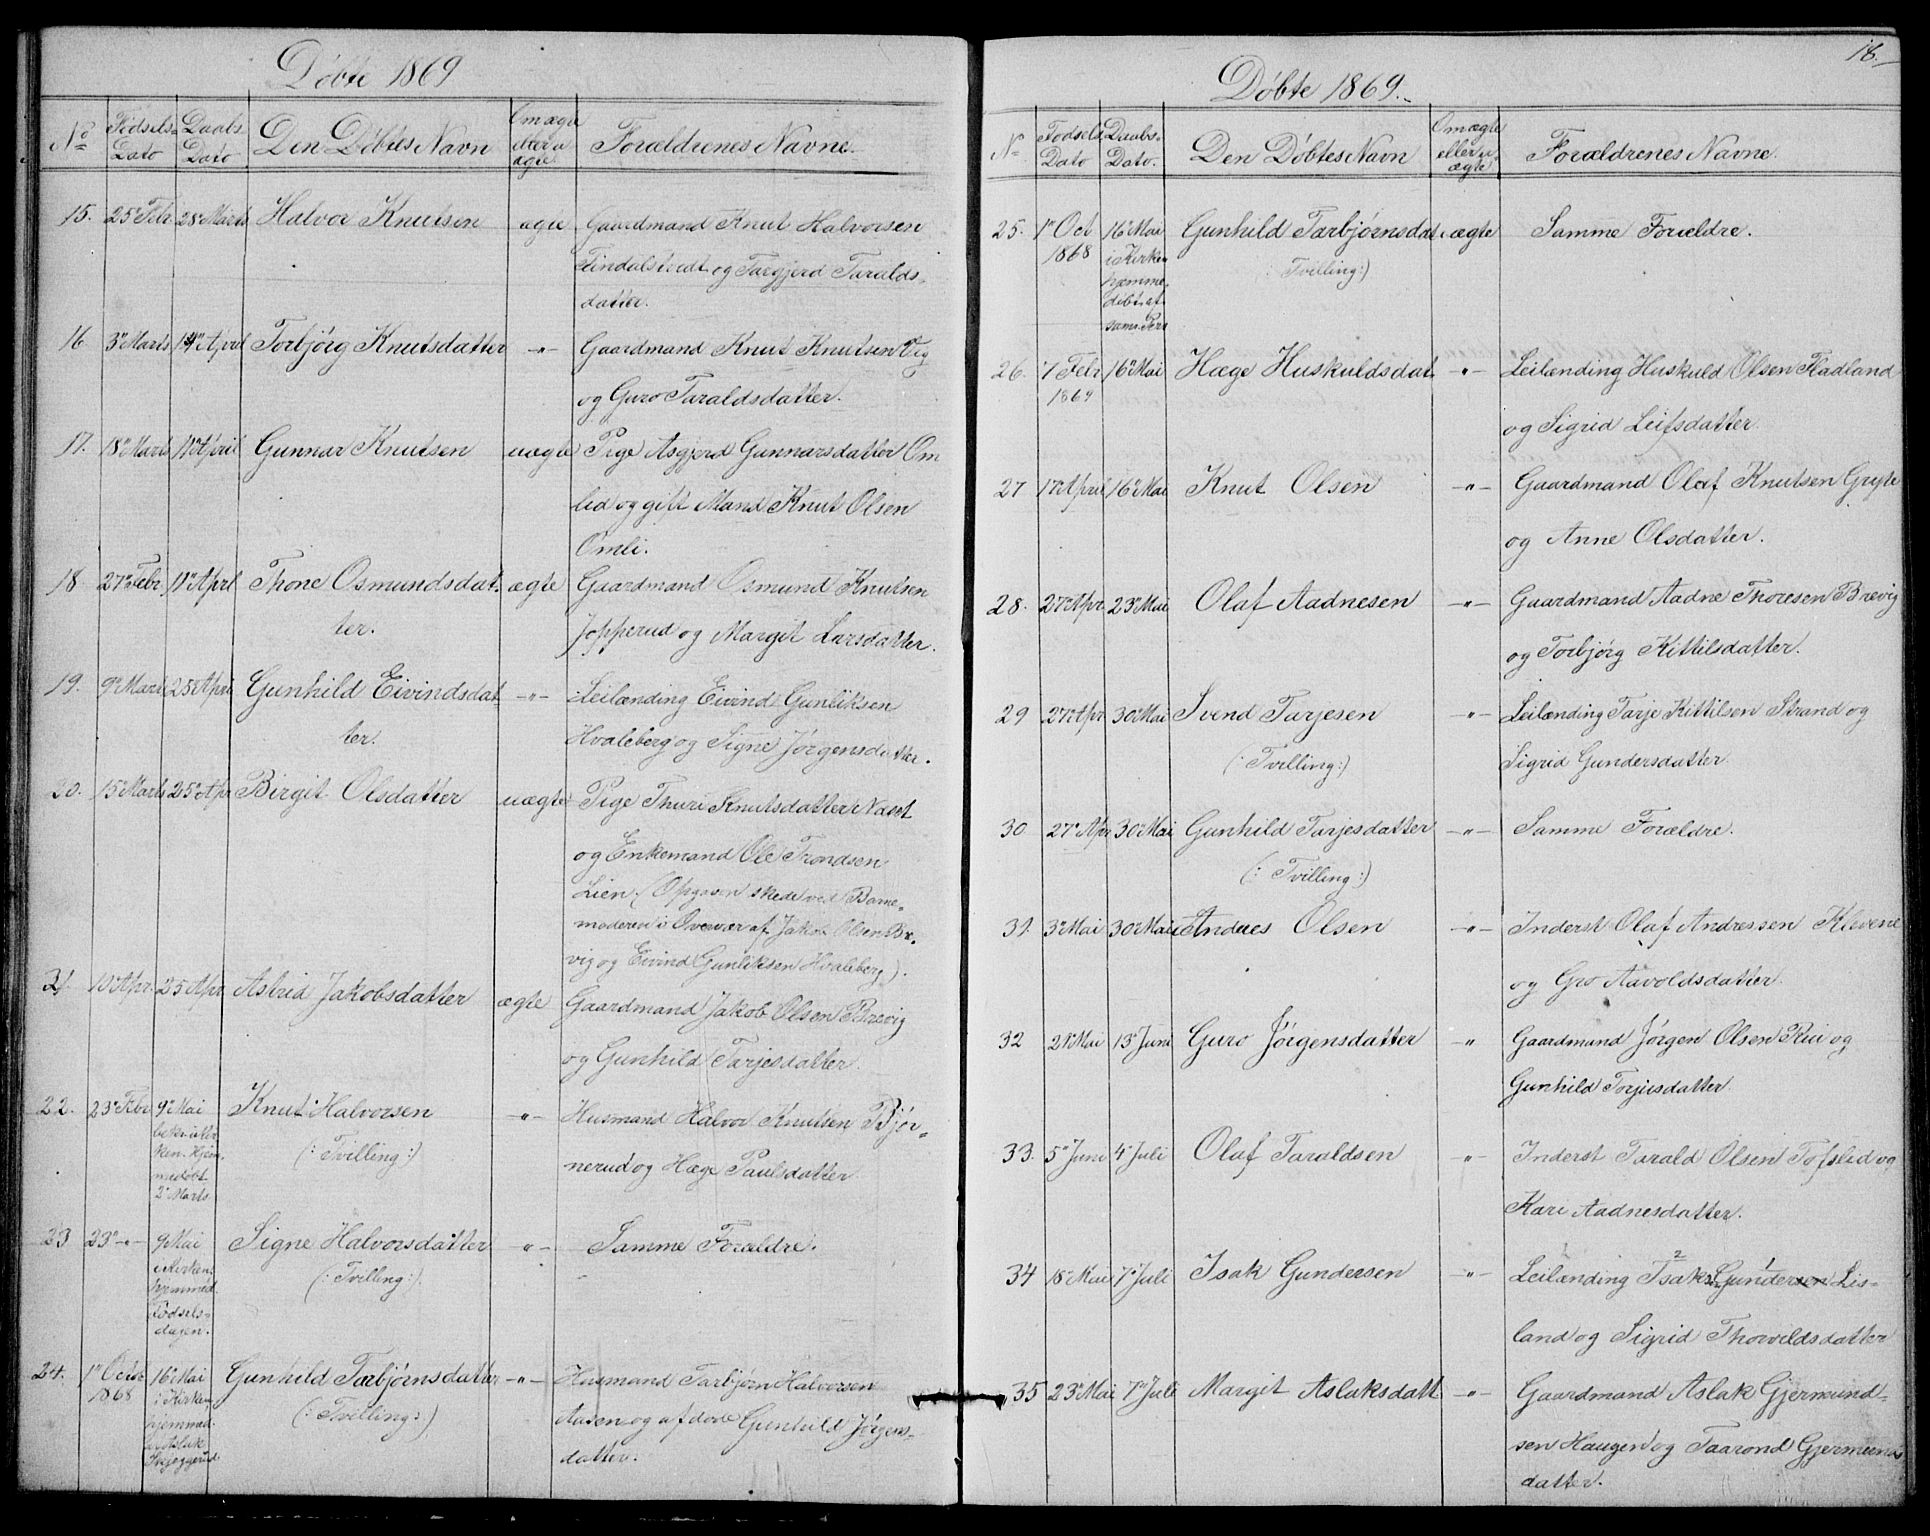 Døbte 1869
No Fødsels Dato Daabs Dato Den Døbtes Navn Om ægte eller u ægte Forældrenes Navne.
15. 25 Febr 28 Marts Halvor Knutsen ægte Gaardmand Knut Halvorsen
Tindalstvedt og Targjerd Taralds-
datter.
16 3 Marts April Torbjørg Knutsdatter -"- Gaardmand Knut Knutsen Vig
og Guro Taraldsdatter.
17. 18 Marts 11 April Gunnar Knutsen uægte Pige Asgjerd Gunnarsdatter Om
lid og gift Mand Knut Olsen
Omli.
18 27 Febr. 11 April Thone Osmundsdat- ægte Gaardmand Osmund Knutsen
ter. Jopperud og Margit Larsdatter.
19. 9 Marts 25 Apri Gunhild Eivindsdat -"- Leilænding Eivind Gunliksen
ter. Hvaleberg og Signe Jørgensdatter.
20. 15 Marts 25 Apr Birgit Olsdatter uægte Pige Thuri Knutsdatter
og Enkemand Ole Trondsen
Lien. (Opgaven skede ved Barne-
moderen i Overvær af Jakob Olsen Bre-
vig og Eivind Gunliksen Hvaleberg).
21 10 Apr. 25 Apr Astrid Jakobsdatter ægte Gaardmand Jakob Olsen Brevig
og Gunhild Tarjesdatter.
22. 23 Febr 9 Mai Knut Halvorsen -"- Husmand Halvor Knutsen Bjør-
bekr. i Kir
ken. Hjem (: Tvilling :) nerud og Hæge Paulsdatter
medøbt
2 Marts
23 23 -"- 9 Mai Signe Halvorsdatter -"- Samme Forældre.
i Kirken: (: Tvilling :).
hjemmed.
Fødsels-
dagen.
24. 1 Octbr 16 Mai Gunhild Tarbjørnsdatter -"- Husmand Tarbjørn Halvorsen
1868 i Kirken (: Tvilling :) Aasen og afdøde Gunhild Jørgens-
hjemmed.
av Aslak datter.
Skjeggerud
18.
Døbte 1869.
No Fødsels Dato Daabs- Dato. Den Døbtes Navn Om ægte eller u- ægte Forældrenes Navne.
25. 1 Oct 16 Mai Gunhild Tarbjørnsdat. ægte Samme Forældre.
1868 i Kirken (: Tvilling :)
hjemme
døbt af
sam. Pers
26. 7 Febr 16 Mai Hæge Huskuldsdat. -"- Leilænding Huskuld Olsen Fladland
1869
og Sigrid Leifsdatter.
27 17 April 16 Mai Knut Olsen -"- Gaardmand Olaf Knutsen Gryte
og Anne Olsdatter.
28. 27 Apr 23 Mai Olaf Aadnesen -"- Gaardmand Aadne Thoresen Brevig
og Torbjørg Kittilsdatter.
29 27 Apr 30 Mai Svend Tarjesen -"- Leilænding Tarje Kittilsen Strand og
(: Tvilling :) Sigrid Gundersdatter.
30 27 Apr 30 Mai Gunhild Tarjesdatter -"- Samme Forældre.
(: Tvilling :)
31 3 Mai 30 Mai Andres Olsen -"- Inderst Olaf Andressen Klevene
og Gro Aavoldsdatter.
32 21 Mai 13 Juni Guro Jørgensdatter -" Gaardmand Jørgen Olsen Rui og
Gunhild Torjusdatter.
33. 5 Juni 4 Juli Olaf Taraldsen -"- Inderst Tarald Olsen Tofslid og
Kari Aadnesdatter.
34 18 Mai 7 Juli Isak Gundersen -"- Leilænding Isaks Gundersen Lis-
land og Sigrid Thorvildsdatter
35 23 Mai 7 Juli Margit Aslaksdatt -"- Gaardmand Aslak Gjermund-
sen Haugen og Taarond Gjermunds
datter.